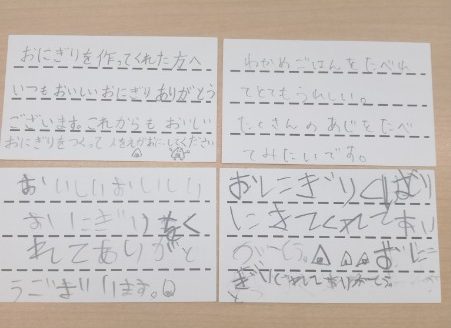 おにぎりを作ってくれた方へ
いつもおいしいおにぎりありがとう
ございます。これからもおいしい
おにぎりをつくって人をえがおにしてください
わかめごはんをたべれ
てとてもうれしい。
たくさんのあじをたべ
てみたいです。
おいしいおいしい
おにぎりをく
れてありがと
うございます。
おにぎりくばり
にきてくれてあり
がとう。おに